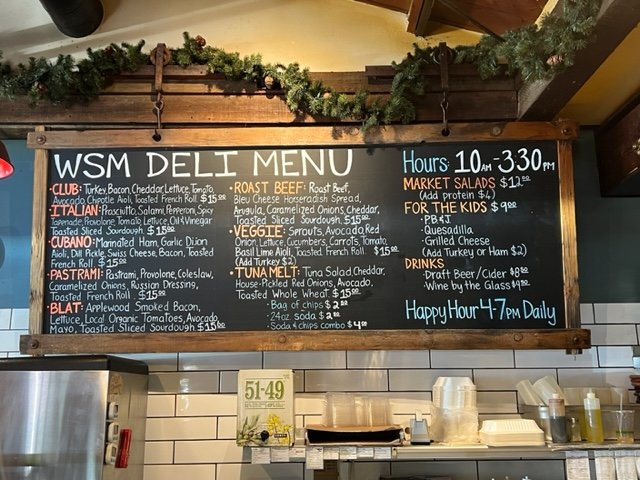 WSM DELI MENU
• CLUB: Turkey, Bacon, Cheddar, Lettuce, Tomato,
Avocado, Chipotle Aioli, Toasted French Roll. $15.00
• ITALIAN: Prosciutto, Salami, Pepperoni, Spicy
Tapenade, Provolone, Tomato, Lettuce, Oil & Vinegar
Toasted Sliced Sourdough. $15.00
• CUBANO: Marinated Ham, Garlic Dijon
Aioli, Dill Pickle, Swiss Cheese, Bacon, Toasted
French Roll. $15.00
• PASTRAMI: Pastrami, Provolone, Coleslaw,
Caramelized Onions, Russian Dressing,
Toasted French Roll. $15.00
• BLAT: Applewood Smoked Bacon,
Lettuce, Local Organic Tomatoes, Avocado,
Mayo, Toasted Sliced Sourdough. $15.00
• ROAST BEEF: Roast Beef,
Bleu Cheese Horseradish Spread,
Arugula, Caramelized Onions, Cheddar,
Toasted Sliced Sourdough. $15.00
• VEGGIE: Sprouts, Avocado, Red
Onion, Lettuce, Cucumbers, Carrots, Tomato,
Basil Lime Aioli, Toasted French Roll. $15.00
(Add Turkey $2)
• TUNA MELT: Tuna Salad, Cheddar,
House-Pickled Red Onions, Avocado,
Toasted Whole Wheat. $15.00
• Bag of chips $2.00
• 24oz soda $2.00
• Soda & chips combo $4.00
Hours: 10AM-3:30PM
MARKET SALADS $12.00
(Add protein $4)
FOR THE KIDS $9.00
• PB & J
• Quesadilla
• Grilled Cheese
(Add Turkey or Ham $2)
DRINKS
• Draft Beer/Cider $8.00
• Wine by the Glass $9.00
Happy Hour 4-7PM Daily
51-49